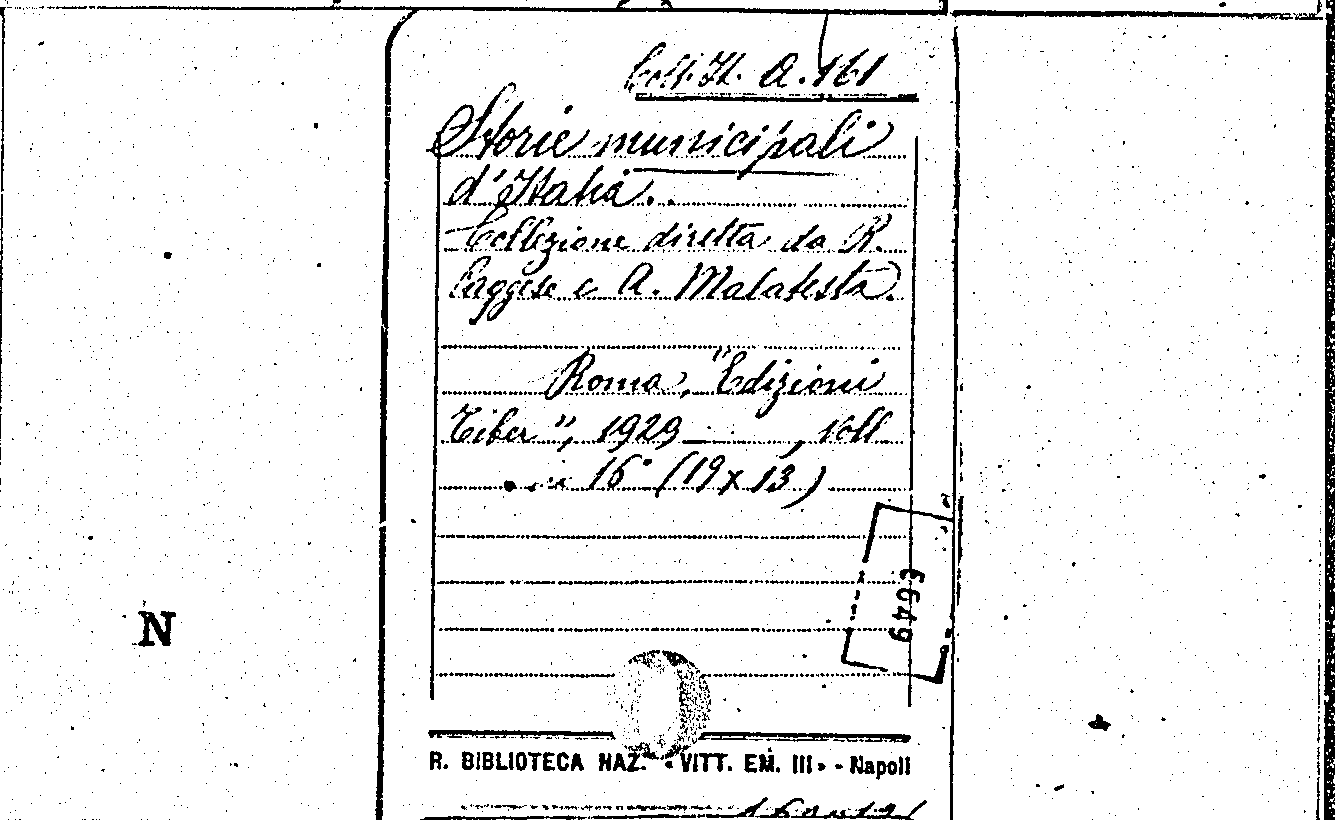 Coll. It. A. 161
Storie municipali
d'Italia..
Collezione diretta da R.
Caggese e A. Malatesta.
Roma, "Edizioni
Tiber", 1929 , Voll.
in 16° (19x13)
6649
N
R. BIBLIOTECA NAZ. «VITT. EM. III» - Napoli